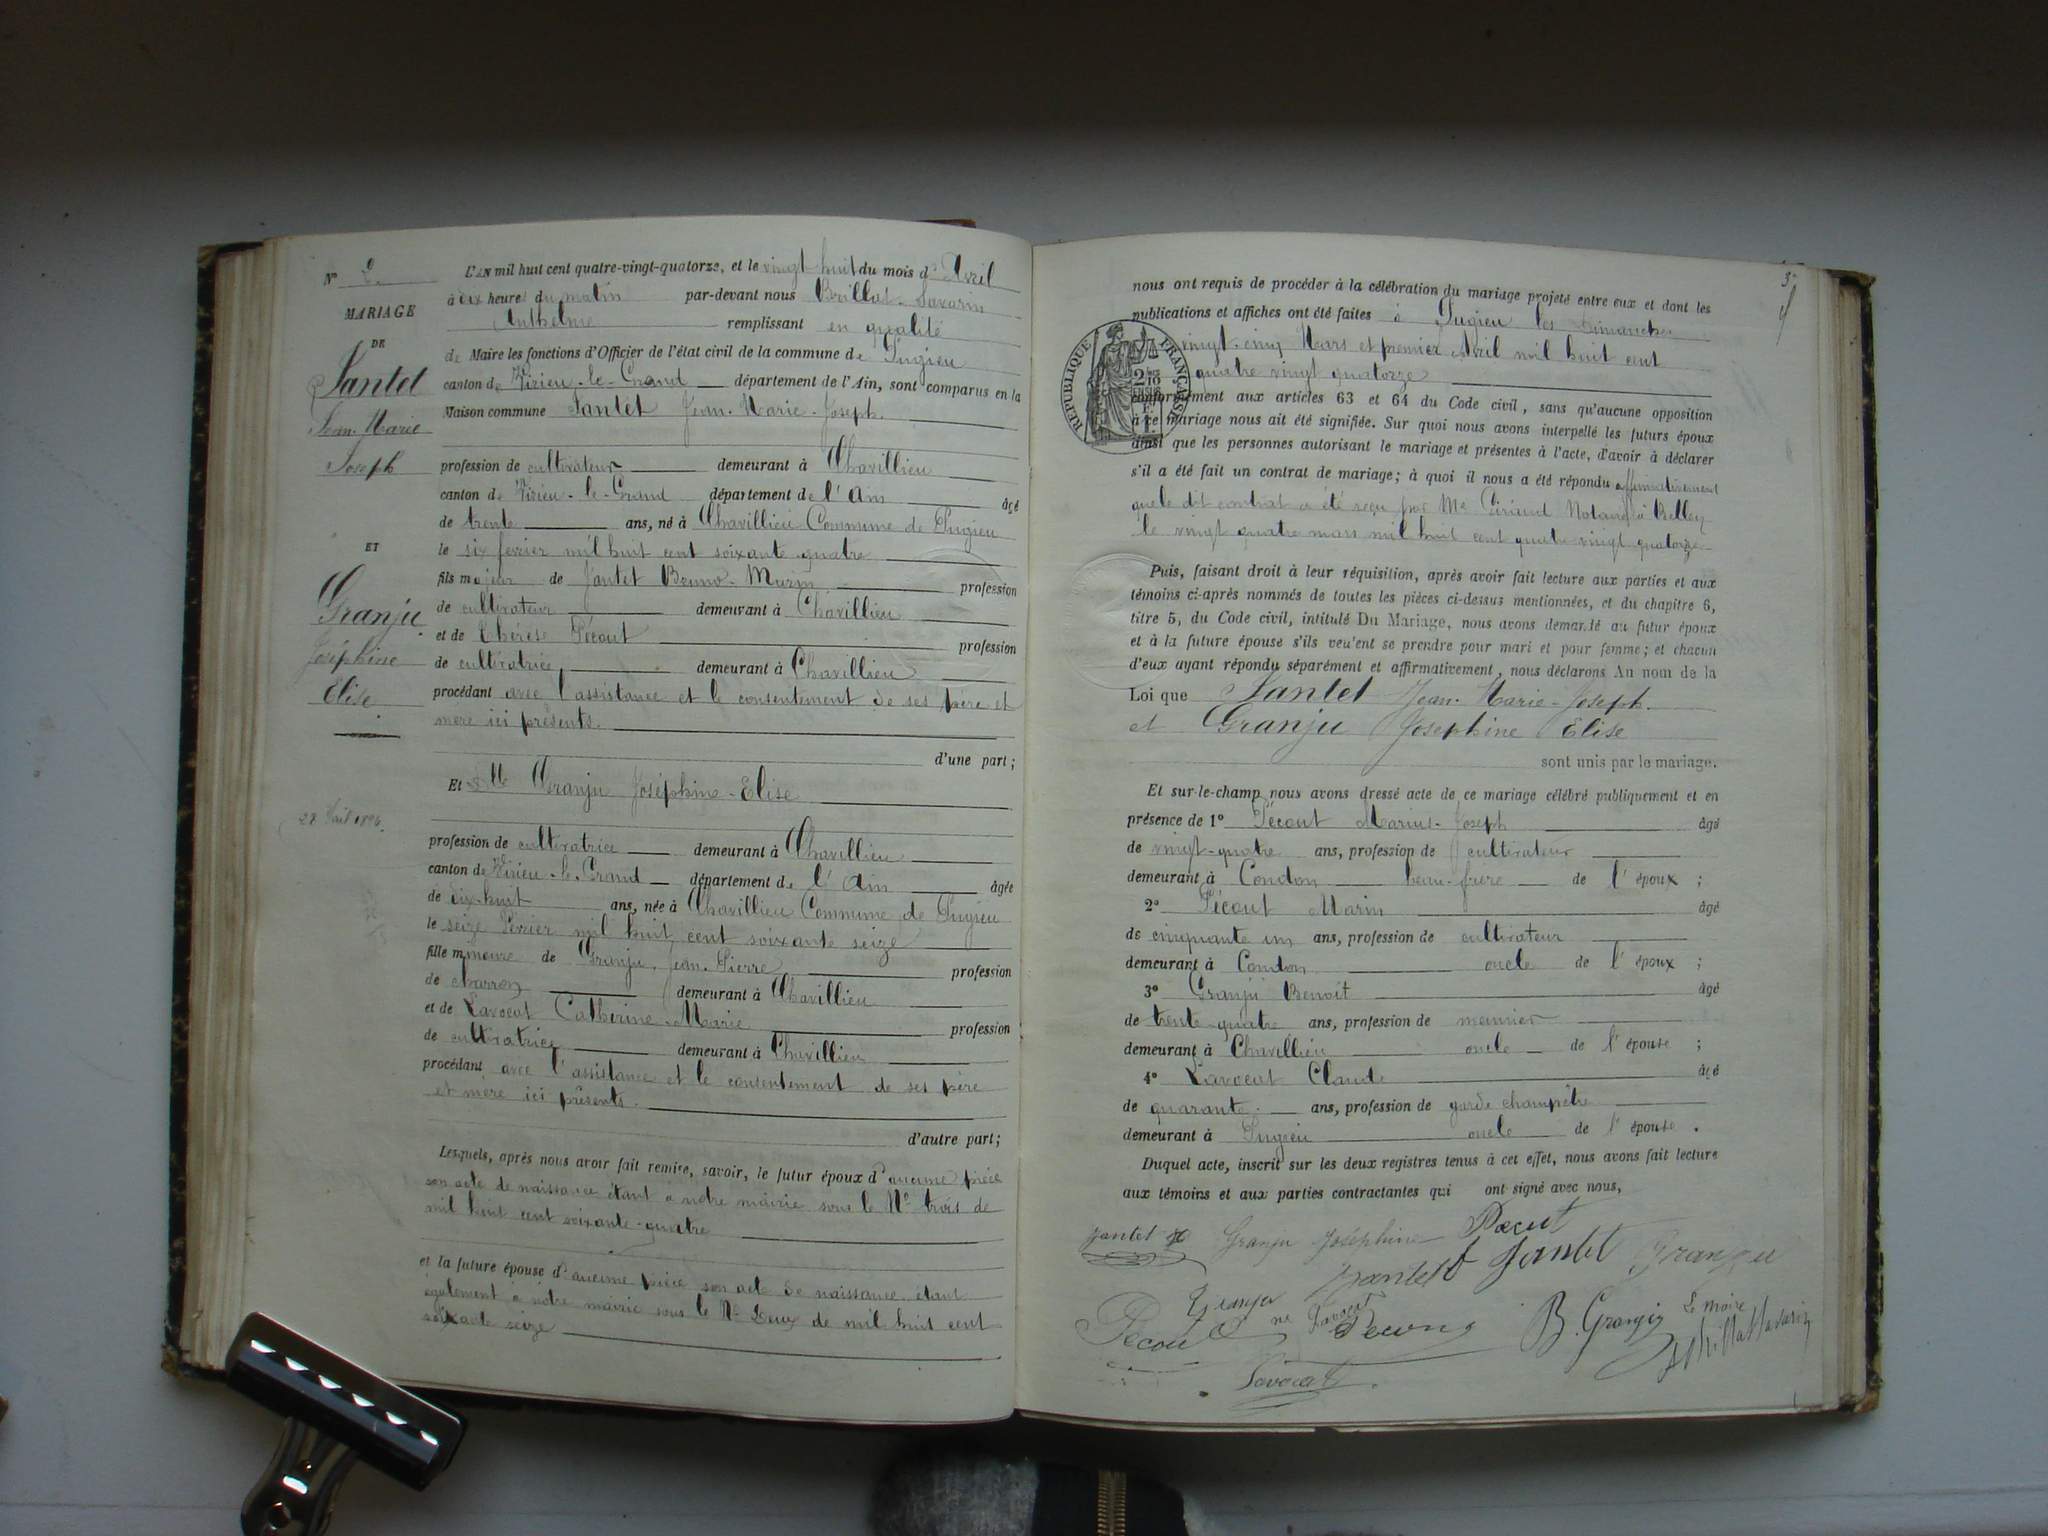 N° 2
MARIAGE
DE
Jantet
Jean-Marie
Joseph
ET
Granju
Joséphine
Elise
L'AN mil huit cent quatre-vingt-quatorze, et le vingt-huit du mois d'Avril
à dix heures du matin par-devant nous Brillat-Savarin
Anthelme remplissant en qualité
de Maire les fonctions d'Officier de l'état civil de la commune de Pugieu
canton de Virieu-le-Grand département de l'Ain, sont comparus en la
Maison commune Jantet Jean-Marie-Joseph
profession de cultivateur demeurant à Chavillieu
canton de Virieu-le-Grand département de l'Ain âgé
de trente ans, né à Chavillieu Commune de Pugieu
le six fevrier mil huit cent soixante quatre
fils majeur de Jantet Bruno-Marin profession
de cultivateur demeurant à Chavillieu
et de Thérèse Pécout profession
de cultivatrice demeurant à Chavillieu
procédant avec l'assistance et le consentement de ses père et
mère ici présents.
d'une part;
Et Dlle Granju Joséphine-Elise
profession de cultivatrice demeurant à Chavillieu
canton de Virieu-le-Grand département de l'Ain âgée
de dix-huit ans, née à Chavillieu Commune de Pugieu
le seize Février mil huit cent soixante seize
fille mineure de Granju Jean-Pierre profession
de charron demeurant à Chavillieu
et de Lavocat Catherine-Marie profession
de cultivatrice demeurant à Chavillieu
procédant avec l'assistance et le consentement de ses père
et mère ici présents.
d'autre part;
Lesquels, après nous avoir fait remise, savoir, le futur époux d'aucune pièce
son acte de naissance étant à notre mairie sous le N° trois de
mil huit cent soixante-quatre
et la future épouse d'aucune pièce son acte de naissance étant
également à notre mairie sous le N° Deux de mil huit cent
soixante seize
3
nous ont requis de procéder à la célébration du mariage projeté entre eux et dont les
publications et affiches ont été faites à Pugieu les Dimanches
vingt-cinq Mars et premier Avril mil huit cent
quatre vingt quatorze
RÉPUBLIQUE FRANÇAISE
conformément aux articles 63 et 64 du Code civil, sans qu'aucune opposition
à ce mariage nous ait été signifiée. Sur quoi nous avons interpellé les futurs époux
ainsi que les personnes autorisant le mariage et présentes à l'acte, d'avoir à déclarer
s'il a été fait un contrat de mariage; à quoi il nous a été répondu affirmativement
que le dit contrat a été reçu par Me Notaire à Belley
le vingt quatre mars mil huit cent quatre vingt quatorze
Puis, faisant droit à leur réquisition, après avoir fait lecture aux parties et aux
témoins ci-après nommés de toutes les pièces ci-dessus mentionnées, et du chapitre 6,
titre 5, du Code civil, intitulé Du Mariage, nous avons demandé au futur époux
et à la future épouse s'ils veulent se prendre pour mari et pour femme; et chacun
d'eux ayant répondu séparément et affirmativement, nous déclarons Au nom de la
Loi que Jantet Jean-Marie-Joseph
et Granju Josephine Elise
sont unis par le mariage.
Et sur-le-champ nous avons dressé acte de ce mariage célébré publiquement et en
présence de 1° Pécout Marius-Joseph âgé
de vingt-quatre ans, profession de cultivateur
demeurant à Condon beau-frère de l'époux ;
2° Pécout Marin âgé
de cinquante un ans, profession de cultivateur
demeurant à Condon oncle de l'époux ;
3° Granju Benoit âgé
de trente quatre ans, profession de meunier
demeurant à Chavillieu oncle de l'épouse ;
4° Lavocat Claude âgé
de quarante ans, profession de garde champêtre
demeurant à Pugieu oncle de l'épouse .
Duquel acte, inscrit sur les deux registres tenus à cet effet, nous avons fait lecture
aux témoins et aux parties contractantes qui ont signé avec nous,
Jantet Granju Joséphine Pecout
Jantet Jantet Granju
Granju
Pécout Lavocat B. Granju Le maire
Lavocat